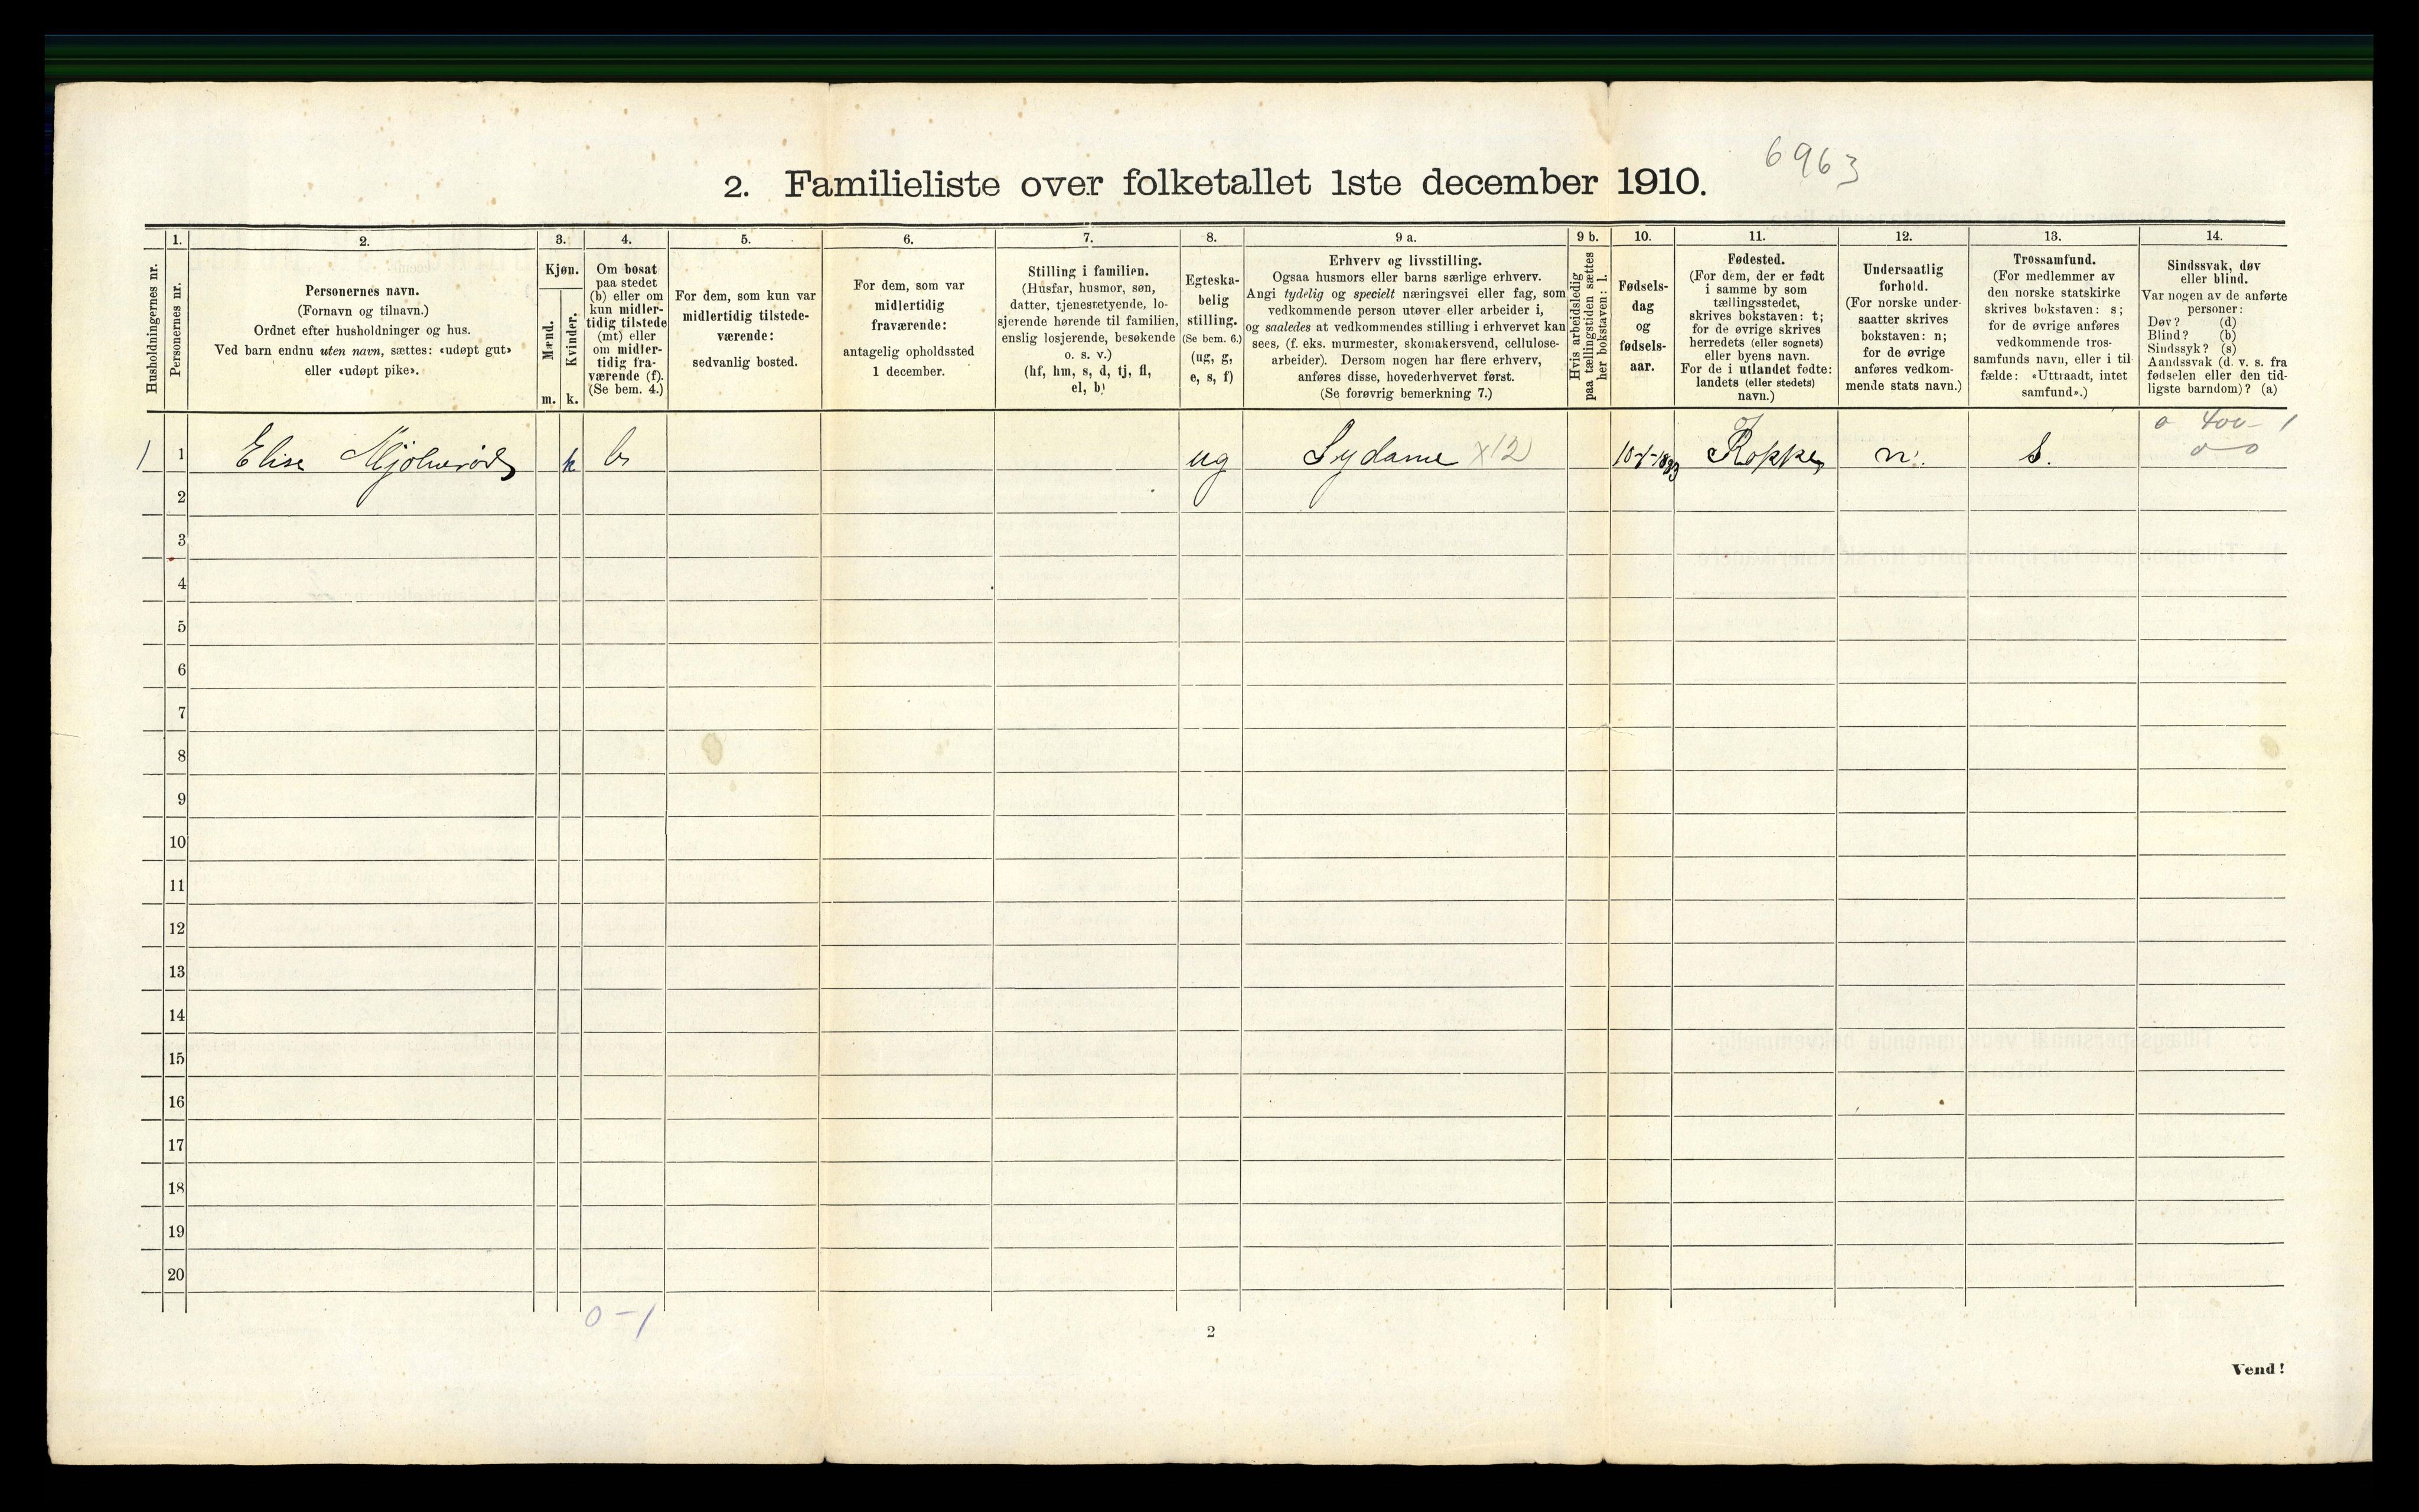 6963
2. Familieliste over folketallet 1ste december 1910.
Husholdningernes nr.
1.
Personernes nr.
2.
Personernes navn.
(Fornavn og tilnavn.)
Ordnet efter husholdninger og hus.
Ved barn endnu uten navn, sættes: «udøpt gut»
eller «udøpt pike».
3.
Kjøn.
Mænd.
m.
Kvinder.
k.
4.
Om bosat
paa stedet
(b) eller om
kun midler-
tidig tilstede
(mt) eller
om midler-
tidig fra-
værende (f).
(Se bem. 4.)
5.
For dem, som kun var
midlertidig tilstede-
værende:
sedvanlig bosted.
6.
For dem, som var
midlertidig
fraværende:
antagelig opholdssted
1 december.
7.
Stilling i familien.
(Husfar, husmor, søn,
datter, tjenestetyende, lo-
sjerende hørende til familien,
enslig losjerende, besøkende
o. s. v.)
(hf, hm, s, d, tj, fl,
el, b)
8.
Egteska-
belig
stilling.
(Se bem. 6.)
(ug, g,
e, s, f)
9 a.
Erhverv og livsstilling.
Ogsaa husmors eller barns særlige erhverv.
Angi tydelig og specielt næringsvei eller fag, som
vedkommende person utøver eller arbeider i,
og saaledes at vedkommendes stilling i erhvervet kan
sees, (f. eks. murmester, skomakersvend, cellulose-
arbeider). Dersom nogen har flere erhverv,
anføres disse, hovederhvervet først.
(Se forøvrig bemerkning 7.)
9 b.
Hvis arbeidsledig
paa tællingstiden sættes
her bokstaven: l.
10.
Fødsels-
dag
og
fødsels-
aar.
11.
Fødested.
(For dem, der er født
i samme by som
tællingsstedet,
skrives bokstaven: t;
for de øvrige skrives
herredets (eller sognets)
eller byens navn.
For de i utlandet fødte:
landets (eller stedets)
navn.)
12.
Undersaatlig
forhold.
(For norske under-
saatter skrives
bokstaven: n;
for de øvrige
anføres vedkom-
mende stats navn.)
13.
Trossamfund.
(For medlemmer av
den norske statskirke
skrives bokstaven: s;
for de øvrige anføres
vedkommende tros-
samfunds navn, eller i til-
fælde: «Uttraadt, intet
samfund».)
14.
Sindssvak, døv
eller blind.
Var nogen av de anførte
personer:
Døv? (d)
Blind? (b)
Sindssyk? (s)
Aandssvak (d. v. s. fra
fødselen eller den tid-
ligste barndom)? (a)
0 400- 1
1 1 Elise Mjölneröd k b ug Sydame x12 Rokke n. s. 0-0
2
3
4
5
6
7
8
9
10
11
12
13
14
15
16
17
18
19
20
0-1
2
Vend!